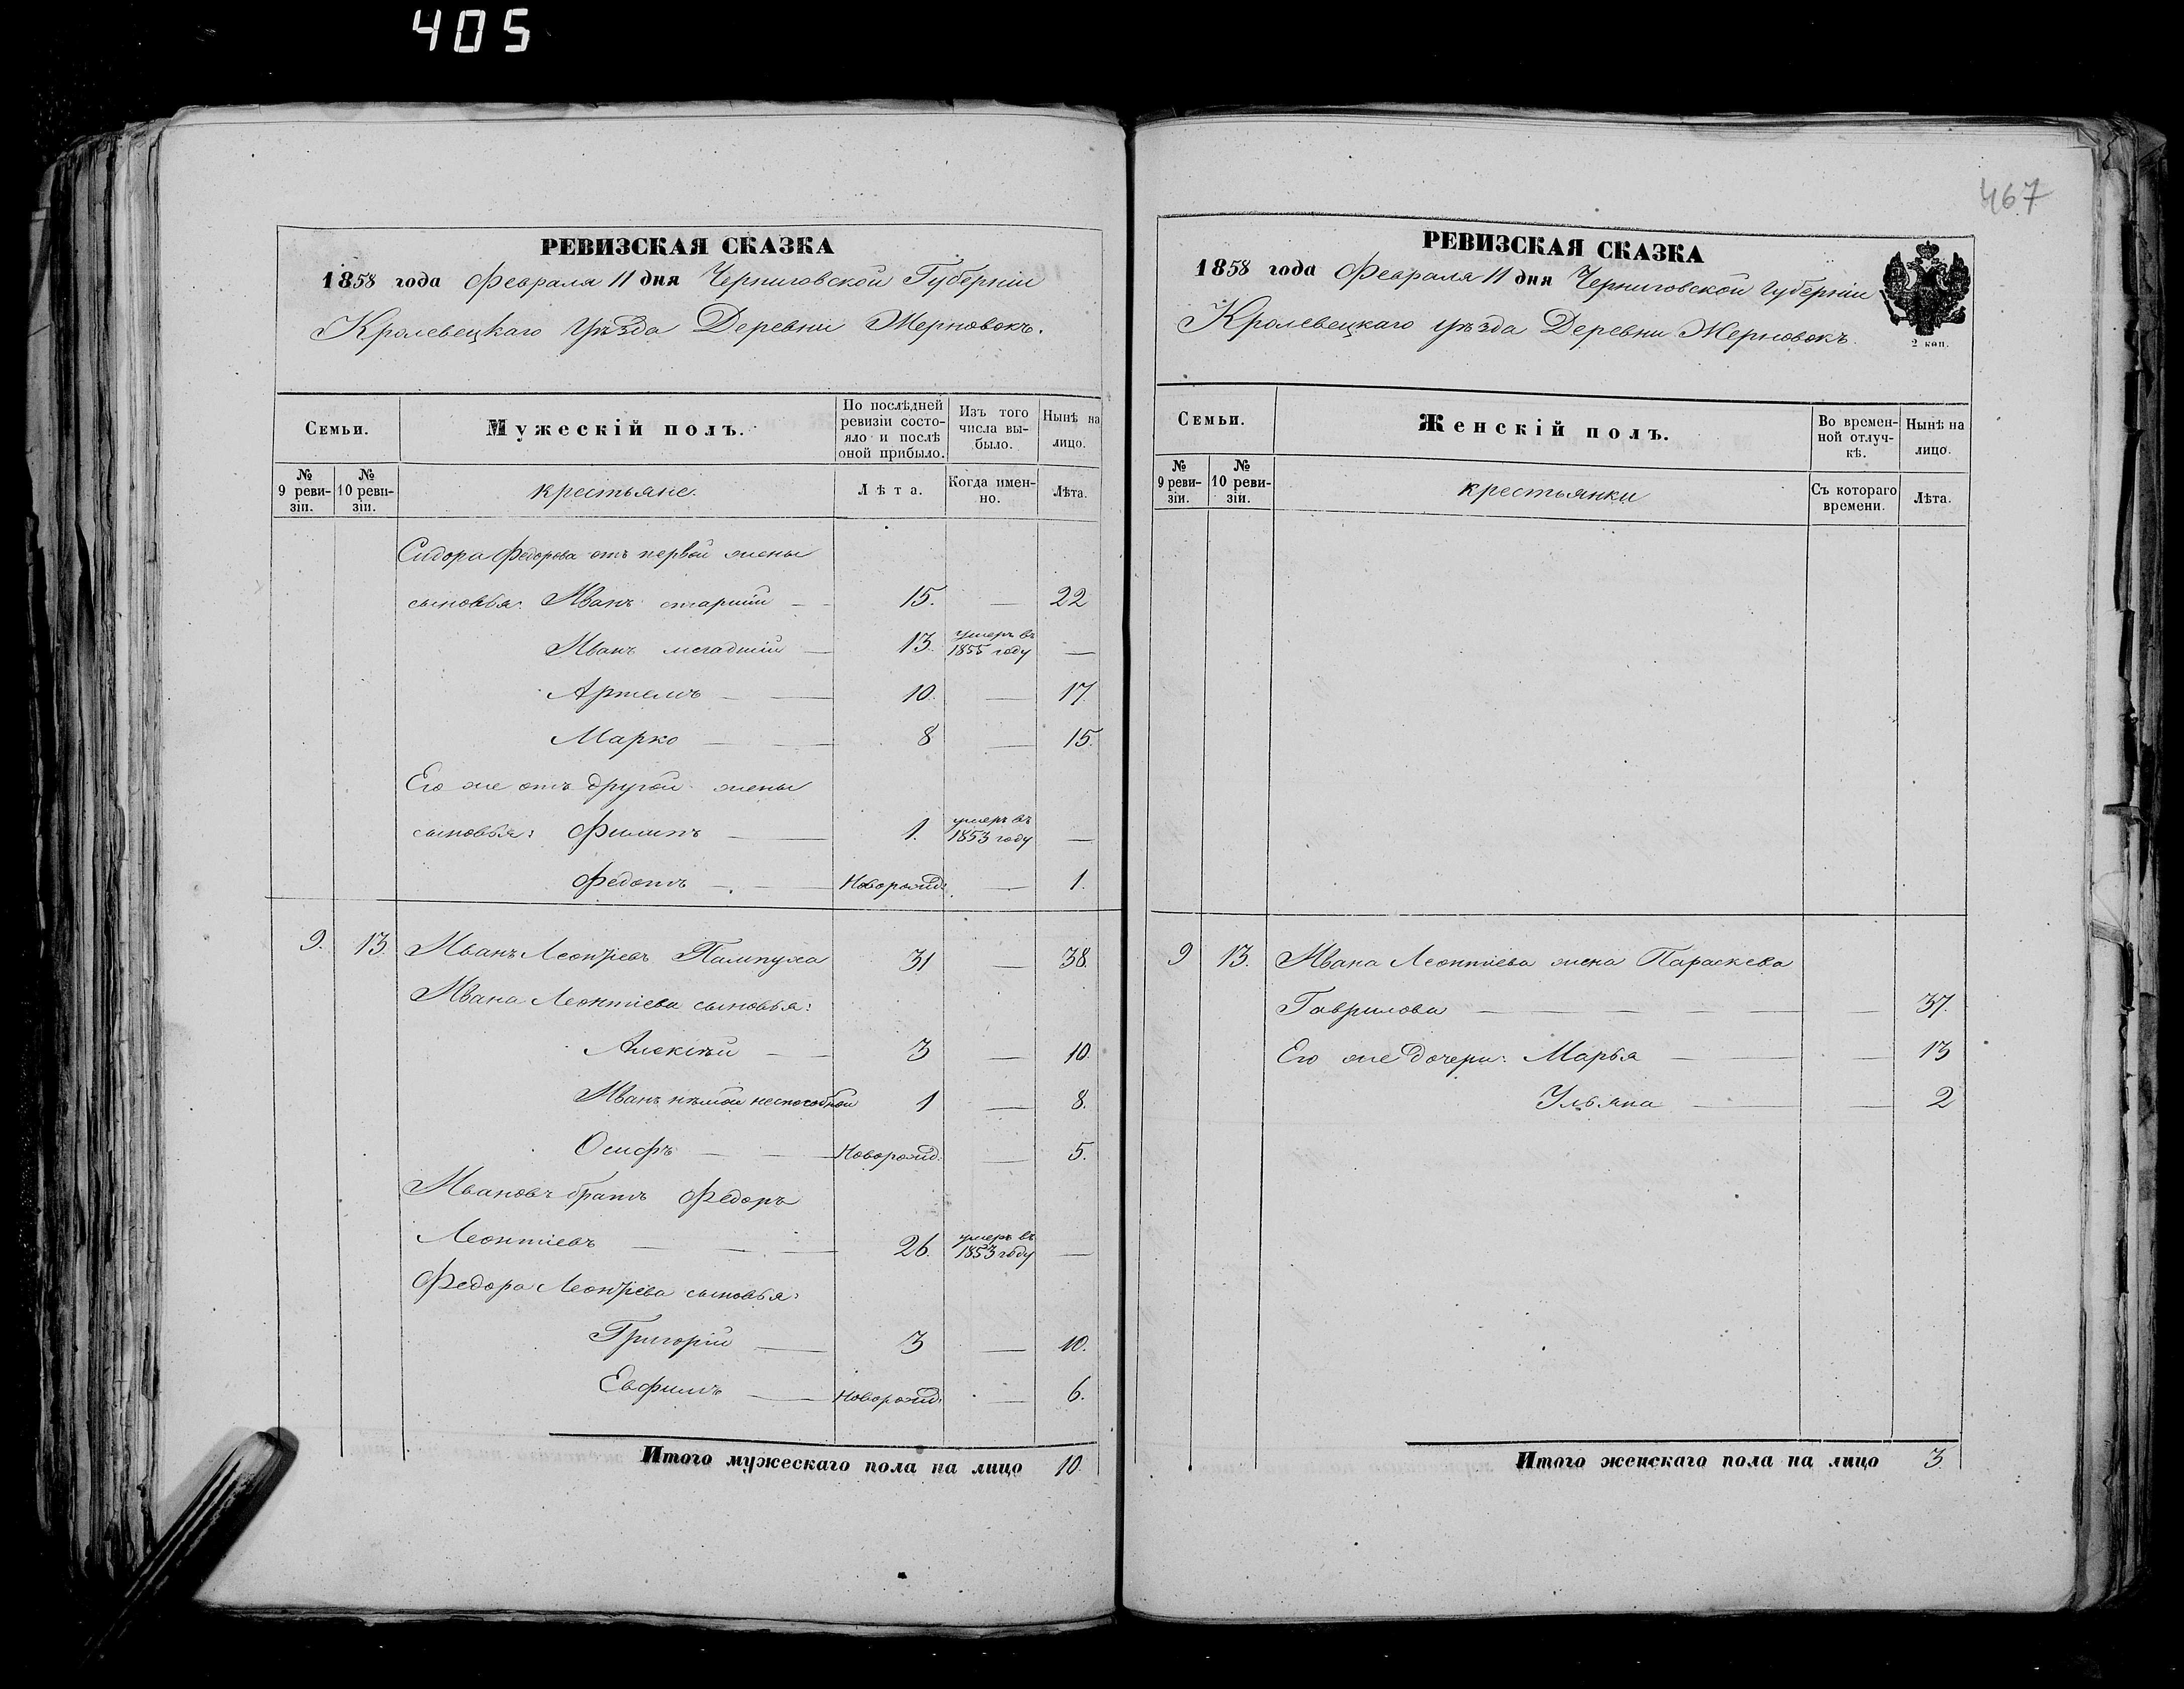 405
РЕВИЗСКАЯ СКАЗКА
1858 года Февраля 11 дня Черниговской Губерніи
Кролевецкаго Уѣзда Деревни Жерновокъ.
Семьи.
Мужескій полъ.
По послѣдней ревизіи состояло и послѣ оной прибыло.
Изъ того числа выбыло.
Нынѣ на лицо.
№ 9 ревизіи.
№ 10 ревизіи.
крестьяне.
Лѣта.
Когда именно.
Лѣта.
Сидора Федорова отъ первой жены
сыновья: Иванъ старшій — 15. — 22
Иванъ младшій — 13. умеръ въ 1855 году —
Артемъ — 10. — 17.
Марко — 8 — 15.
Его же отъ другой жены
сыновья: Филипъ — 1. умеръ въ 1853 году —
Федотъ — Новорожд: — 1.
9. 13. Иванъ Леонтіевъ Пампуха 31 — 38.
Ивана Леонтіева сыновья:
Алексѣй — 3 — 10.
Иванъ нѣмой неспособной 1 — 8.
Осифъ — Новорожд. — 5.
Ивановъ братъ Федоръ
Леонтіевъ — 26. умеръ въ 1853 году —
Федора Леонтіева сыновья:
Григорій — 3 — 10.
Евфимъ — Новорожд: — 6.
Итого мужескаго пола на лицо 10.
467
РЕВИЗСКАЯ СКАЗКА
1858 года Февраля 11 дня Черниговской Губерніи
Кролевецкаго уѣзда Деревни Жерновокъ.
2 коп.
Семьи.
Женскій полъ.
Во временной отлучкѣ.
Нынѣ на лицо.
№ 9 ревизіи.
№ 10 ревизіи.
крестьянки
Съ котораго времени.
Лѣта.
9 13. Ивана Леонтіева жена Параскева
Гаврилова — — 37.
Его же дочери: Марья — — 13
Ульяна — — 2
Итого женскаго пола на лицо 3.